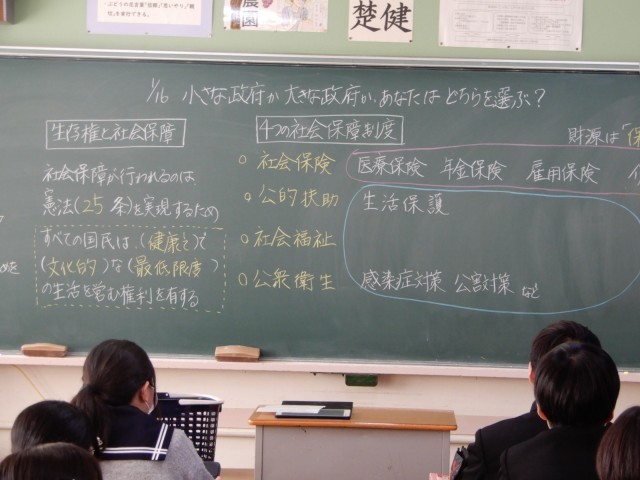 楚健
農園
1/16 小さな政府か大きな政府か、あなたはどちらを選ぶ?
生存権と社会保障
社会保障が行われるのは
憲法(25条)を実現するため
すべての国民は、(健康と)で
(文化的)な(最低限度)
の生活を営む権利を有する
4つの社会保障制度
○社会保険
○公的扶助
○社会福祉
○公衆衛生
財源は「保
医療保険 年金保険 雇用保険
生活保護
感染症対策 公害対策 など